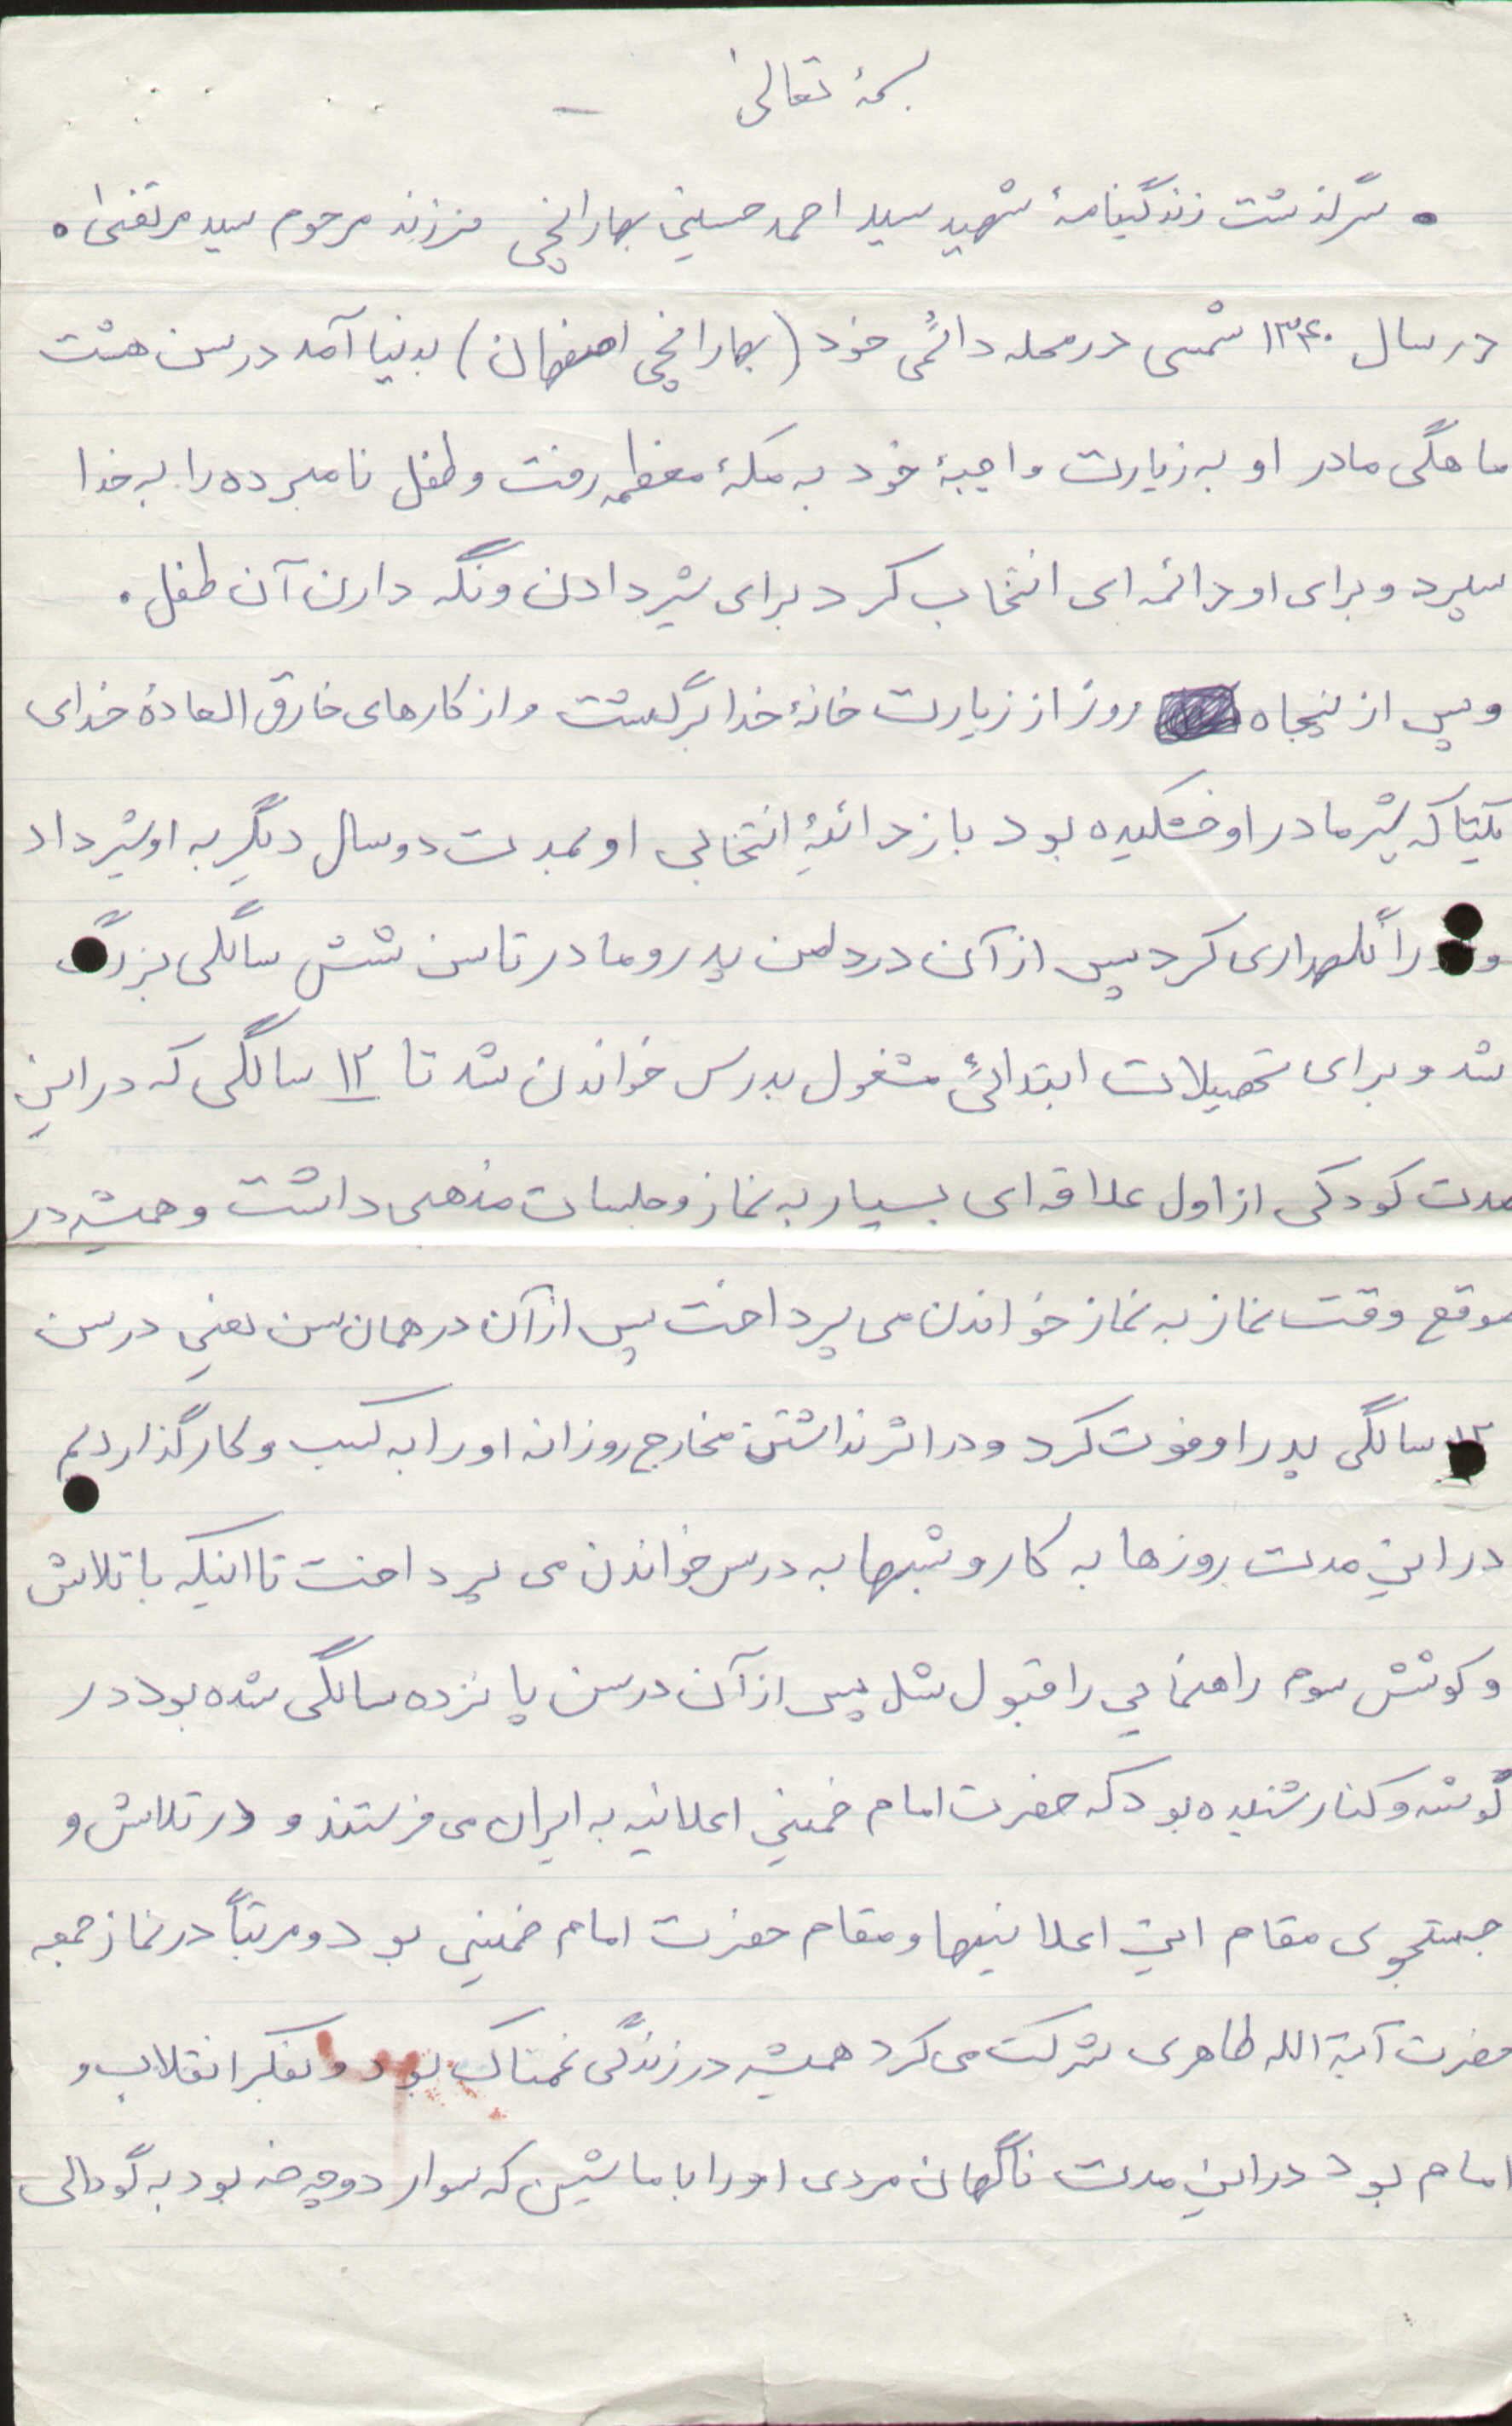 بسمهٔ تعالی
• سرگذشت زندگینامهٔ شهید سید احمد حسینی بهارانچی فرزند مرحوم سید مرتضی •
در سال ۱۳۴۰ شمسی در محله دائمی خود (بهارانچی اصفهان) بدنیا آمد در سن هشت
ماهگی مادر او به زیارت واجبهٔ خود به مکهٔ معظمه رفت و طفل نامبرده را به خدا
سپرد و برای او دائه ای انتخاب کرد برای شیر دادن ونگه دارن آن طفل .
وپس از پنجاه روز از زیارت خانهٔ خدا برگشت و از کارهای خارق العادهٔ خدای
یکتا که شیر مادر او خشکیده بود باز دائهٔ انتخابی او بمدت دو سال دیگر به او شیر داد
و را نگهداری کرد پس از آن در دامن پدر و مادر تا سن شش سالگی بزرگ
شد و برای تحصیلات ابتدائی مشغول بدرس خواندن شد تا ۱۲ سالگی که در این
مدت کودکی از اول علاقه ای بسیار به نماز و جلسات مذهبی داشت و همیشه در
موقع وقت نماز به نماز خواندن می پرداخت پس از آن در همان سن یعنی در سن
۱۲ سالگی پدر او فوت کرد و در اثر نداشتن مخارج روزانه او را به کسب و کار گذاردیم
در این مدت روزها به کار و شبها به درس خواندن می پرداخت تا اینکه با تلاش
و کوشش سوم راهنمایی را قبول شد پس از آن در سن پانزده سالگی شده بود در
گوشه و کنار شنیده بود که حضرت امام خمینی اعلانیه به ایران می فرستند و در تلاش و
جستجوی مقام این اعلانیها و مقام حضرت امام خمینی بود و مرتباً در نماز جمعه
حضرت آیة الله طاهری شرکت می کرد همیشه در زندگی غمناک بود و بفکر انقلاب و
امام بود در این مدت ناگهان مردی او را با ماشین که سوار دوچرخه بود به گودالی